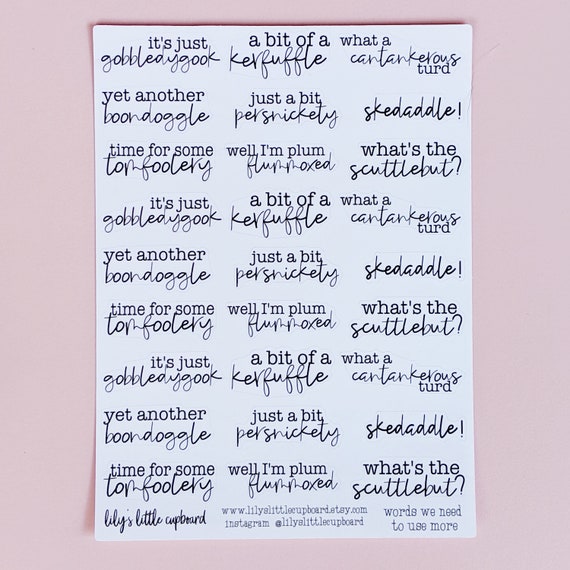 it's just
gobbledygook
a bit of a
kerfuffle
what a
cantankerous
turd
yet another
boondoggle
just a bit
persnickety
skedaddle!
time for some
tomfoolery
well I'm plum
flummoxed
what's the
scuttlebut?
it's just
gobbledygook
a bit of a
kerfuffle
what a
cantankerous
turd
yet another
boondoggle
just a bit
persnickety
skedaddle!
time for some
tomfoolery
well I'm plum
flummoxed
what's the
scuttlebut?
it's just
gobbledygook
a bit of a
kerfuffle
what a
cantankerous
turd
yet another
boondoggle
just a bit
persnickety
skedaddle!
time for some
tomfoolery
well I'm plum
flummoxed
what's the
scuttlebut?
lily's little cupboard
www.lilyslittlecupboard.etsy.com
instagram @lilyslittlecupboard
words we need
to use more